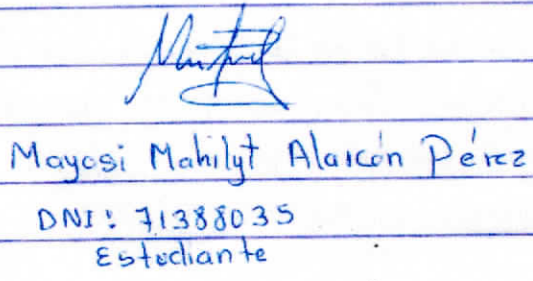 Mayosi Mahilyt Alarcón Pérez
DNI: 71388035
Estudiante